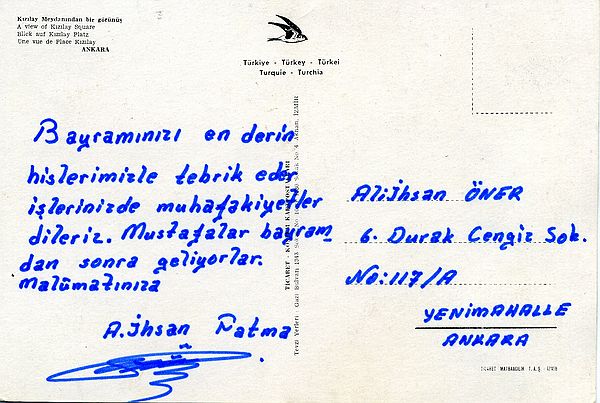 Kızılay Meydanından bir görünüş
A view of Kızılay Square
Blick auf Kızılay Platz
Une vue de Place Kızılay
ANKARA
Türkiye - Türkey - Türkei
Turquie - Turchia
Bayramınızı en derin
hislerimizle tebrik eder
işlerinizde muhafakiyetler
dileriz. Mustafalar bayram
dan sonra geliyorlar.
Malûmatınıza
A.İhsan Fatma
Ali.İhsan ÖNER
6. Durak Cengiz Sok.
No: 117/A
YENİMAHALLE
ANKARA
TİCARET
Tevzi Yerleri : Gazi Bulvarı
TİCARET MATBAACILIK T.A.Ş. - İZMİR